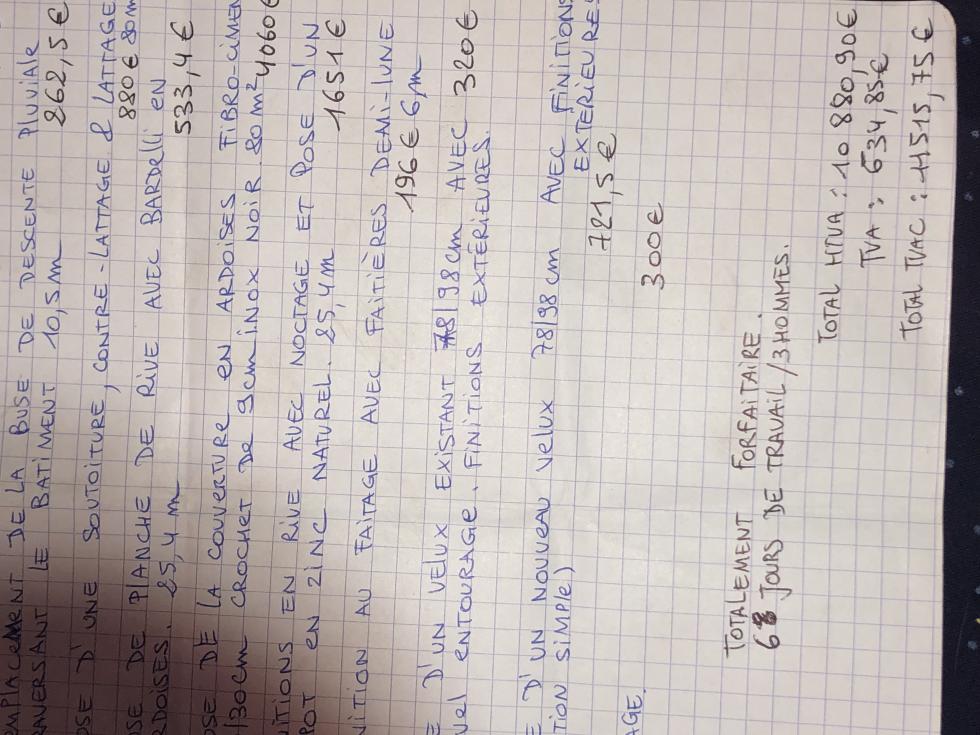 EMPLACEMENT DE LA BUSE DE DESCENTE PLUVIALE
RAVERSANT LE BATIMENT 10,5m 262,5€
OSE D'UNE SOUTOITURE, CONTRE-LATTAGE & LATTAGE
880€ 80m
OSE DE PLANCHE DE RIVE AVEC BARDELLI EN
RDOISES. 25,4m 533,4€
OSE DE LA COUVERTURE EN ARDOISES FIBRO-CIMEN
/30cm CROCHET DE 9cm INOX NOIR 80m² 4060€
NITIONS EN RIVE AVEC NOCTAGE ET POSE D'UN
POT EN ZINC NATUREL. 25,4m 1651€
NITION AU FAITAGE AVEC FAITIÈRES DEMI-LUNE
196€ 6m
E D'UN VELUX EXISTANT 78/98cm AVEC 320€
VEL ENTOURAGE. FINITIONS EXTÉRIEURES.
E D'UN NOUVEAU VELUX 78/98cm AVEC FINITIONS
TION SIMPLE) EXTÉRIEURES
721,5€
AGE. 300€
TOTALEMENT FORFAITAIRE.
6 JOURS DE TRAVAIL/3HOMMES.
TOTAL HTVA : 10 880,90€
TVA : 634,85€
TOTAL TVAC : 11515,75€